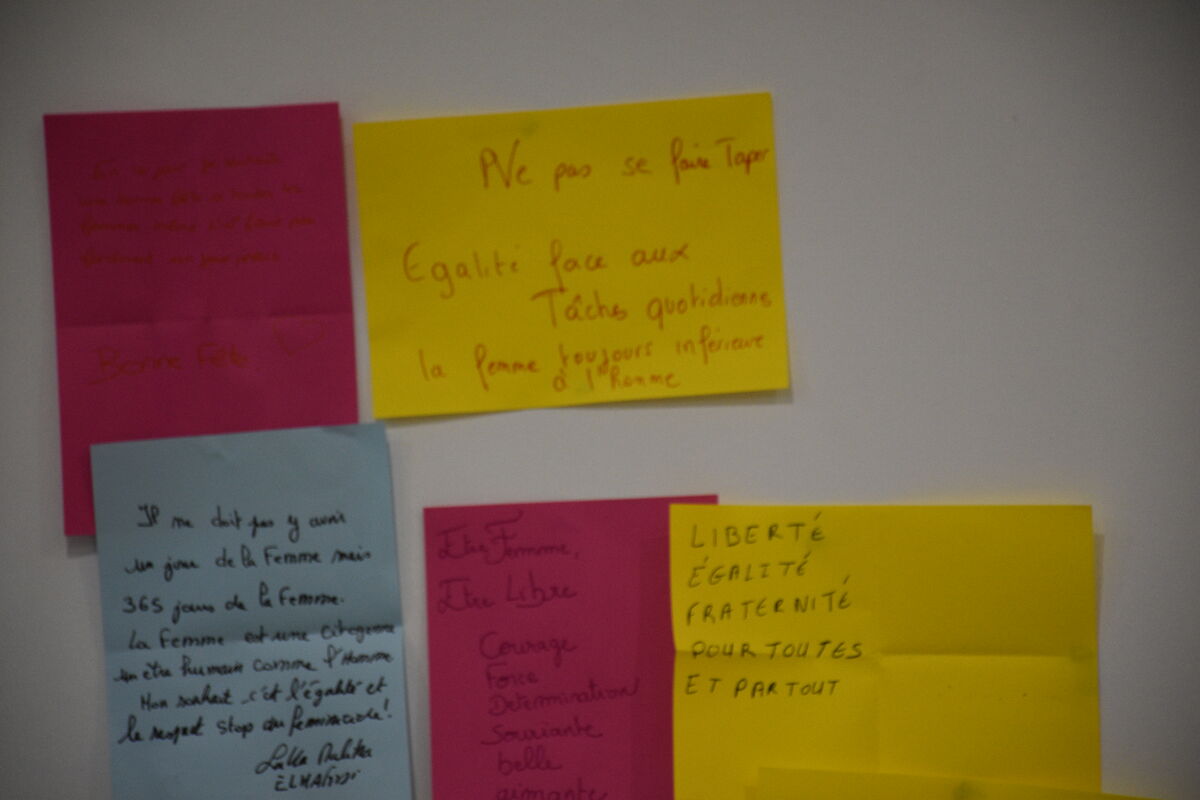 une bonne fête à toutes les
Bonne Fête
Ne pas se faire Taper
Egalité face aux
Tâches quotidienne
la femme toujours inférieure
à l'homme
Il ne doit pas y avoir
un jour de la Femme mais
365 jours de la Femme.
La Femme est une citoyenne
un être humain comme l'Homme
Mon souhait c'est l'égalité et
le respect stop au féminicide!
Etre Femme,
Etre Libre
Courage
Force
Determination
Souriante
belle
aimante
LIBERTÉ
ÉGALITÉ
FRATERNITÉ
POUR TOUTES
ET PARTOUT